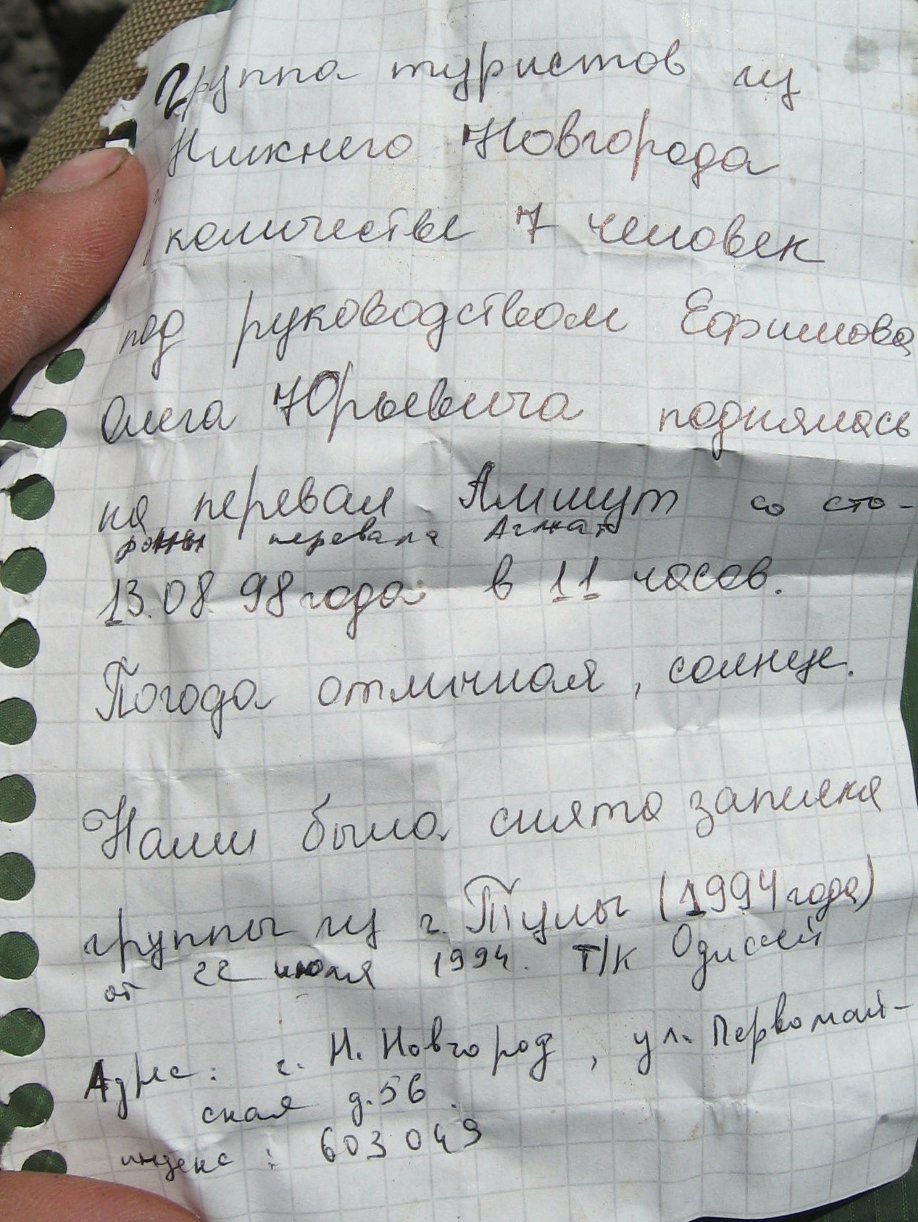 Группа туристов из
Нижнего Новгорода
в количестве 7 человек
под руководством Ефимова
Олега Юрьевича поднялась
на перевал Амшут со сто-
роны перевала
13.08.98 года в 11 часов.
Погода отличная, солнце.
Нами была снята записка
группы из г. Тулы (1994 года)
от 22 июля 1994. Т/К Одиссей
Адрес: г. Н. Новгород, ул. Первомай-
ская д. 56.
индекс: 603049